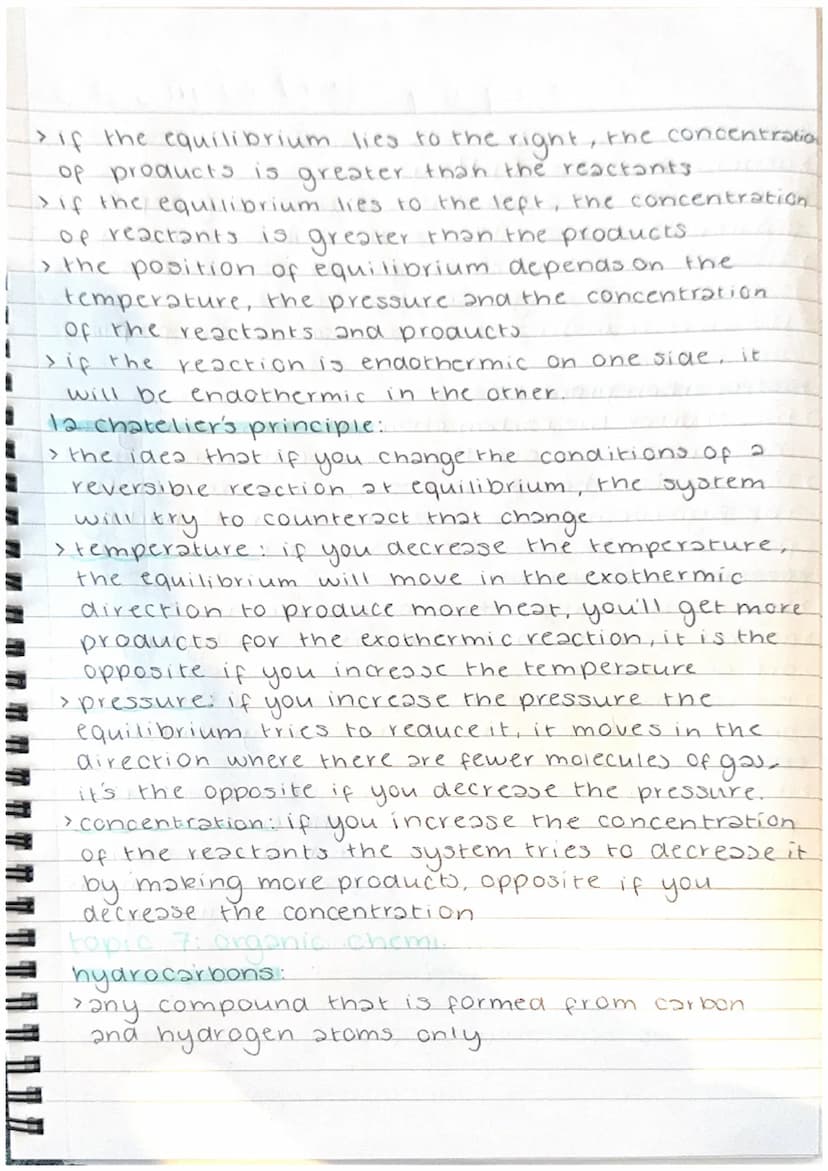 > if the equilibrium lies to the right, the concentratio
of products is greater than the reactants
> if the equilibrium lies to the left, the concentration
of reactants is greater than the products
> the position of equilibrium depends on the
temperature, the pressure and the concentration
of the reactants and products
> if the reaction is endothermic on one side, it
will be endothermic in the other.
la chatelier's principle:
> the idea that if you change the conditions of a
reversible reaction at equilibrium, the system
will try to counteract that change
> temperature: if you decrease the temperature,
the equilibrium will move in the exothermic
direction to produce more heat, you'll get more
products for the exothermic reaction, it is the
opposite if you increase the temperature
> pressure: if you increase the pressure the
equilibrium tries to reduce it, it moves in the
direction where there are fewer molecules of gas.
it's the opposite if you decrease the pressure.
> concentration: if you increase the concentration
of the reactants the system tries to decrease it
by making more products, opposite if you
decrease the concentration
topic 7: organic chemi.
hydrocarbons:
> any compound that is formed from carbon
and hydrogen atoms only